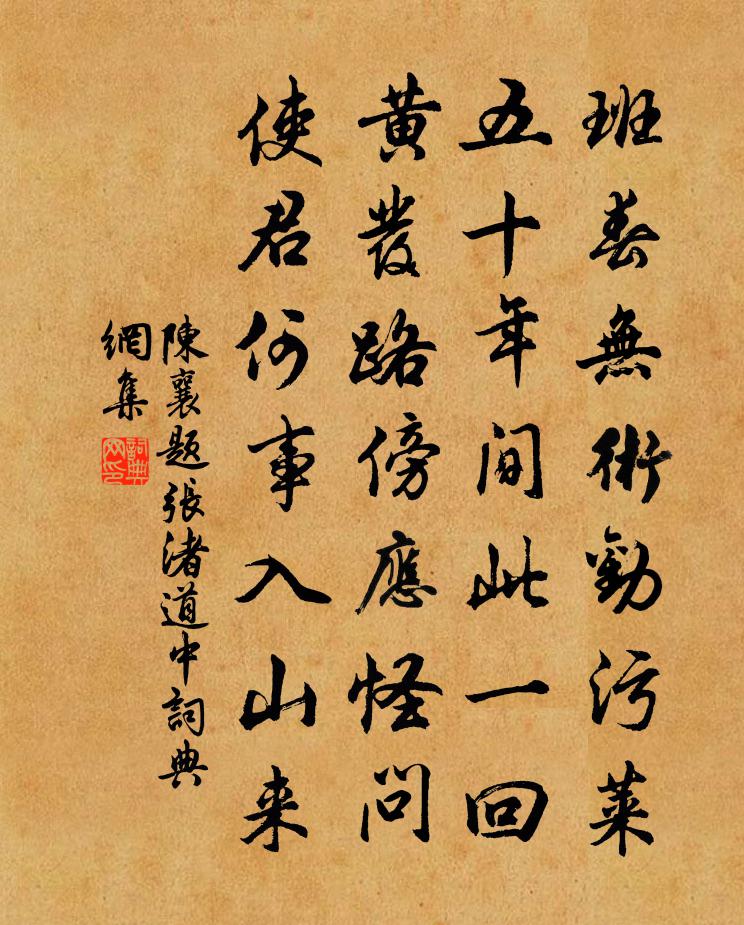 班春無術勸污萊
五十年間此一回
黃發路傍應怪問
使君何事入山来
陳襄題張渚道中詞典
網集
詞典網印